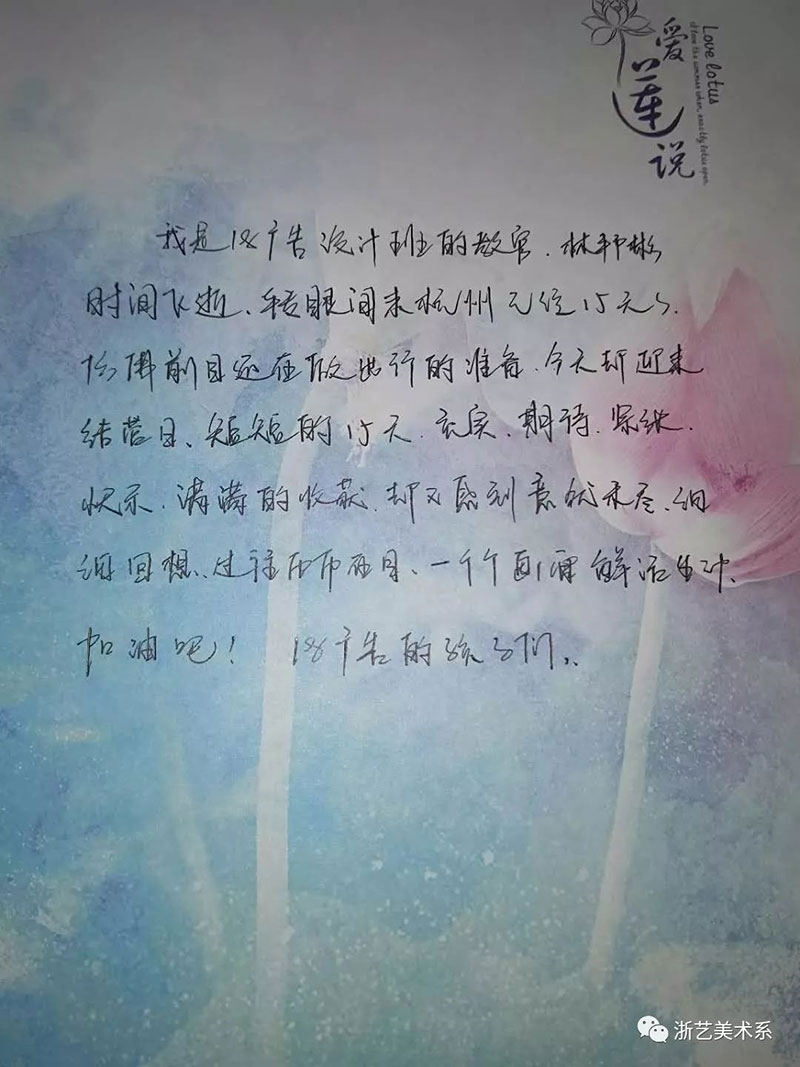 爱莲说
Love lotus
我是18广告设计班的教官、林祁彬
时间飞逝、转眼间来杭州已经15天了.
仿佛前日还在做出行的准备、今天却迎来
结营日、短短的15天.充实、期待.紧张.
快乐.满满的收获.却又感到意犹未尽、细
细回想、过往历历在目、一个个画面鲜活生动、
加油吧！ 18广告的孩子们..
浙艺美术系